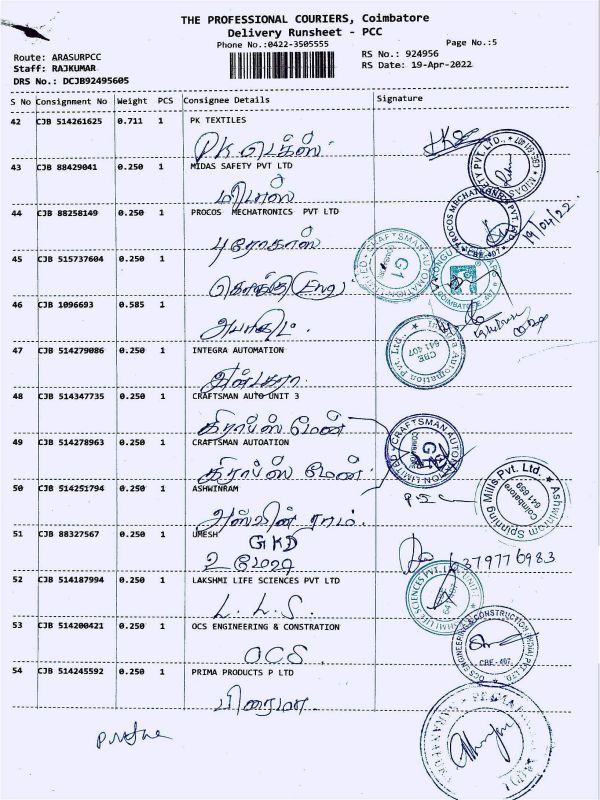 THE PROFESSIONAL COURIERS, Coimbatore
Delivery Runsheet - PCC
Phone No.:0422-3505555
Page No.:5
Route: ARASURPCC
RS No.: 924956
Staff: RAJKUMAR
RS Date: 19-Apr-2022
DRS No.: DCJB92495605
S No Consignment No Weight PCS Consignee Details Signature
42 CJB 514261625 0.711 1 PK TEXTILES
PK டெக்ஸ்
43 CJB 88429041 0.250 1 MIDAS SAFETY PVT LTD
மிடாஸ்
44 CJB 88258149 0.250 1 PROCOS MECHATRONICS PVT LTD
19/04/22
புரோகாஸ்
45 CJB 515737604 0.250 1
கொங்கு (Eng)
46 CJB 1096693 0.585 1
47 CJB 514279086 0.250 1 INTEGRA AUTOMATION
48 CJB 514347735 0.250 1 CRAFTSMAN AUTO UNIT 3
கிராப்ஸ் மேன்
49 CJB 514278963 0.250 1 CRAFTSMAN AUTOATION
கிராப்ஸ் மேன்
50 CJB 514251794 0.250 1 ASHWINRAM
Ashwinram Spinning Mills Pvt. Ltd.
Coimbatore
641 659
அஸ்வின் ராம்
51 CJB 88327567 0.250 1 UMESH
GKD
உமேஷ்
6379776983
52 CJB 514187994 0.250 1 LAKSHMI LIFE SCIENCES PVT LTD
L. L. S.
53 CJB 514200421 0.250 1 OCS ENGINEERING & CONSTRATION
OCS
CBE-407
54 CJB 514245592 0.250 1 PRIMA PRODUCTS P LTD
பிரைமா